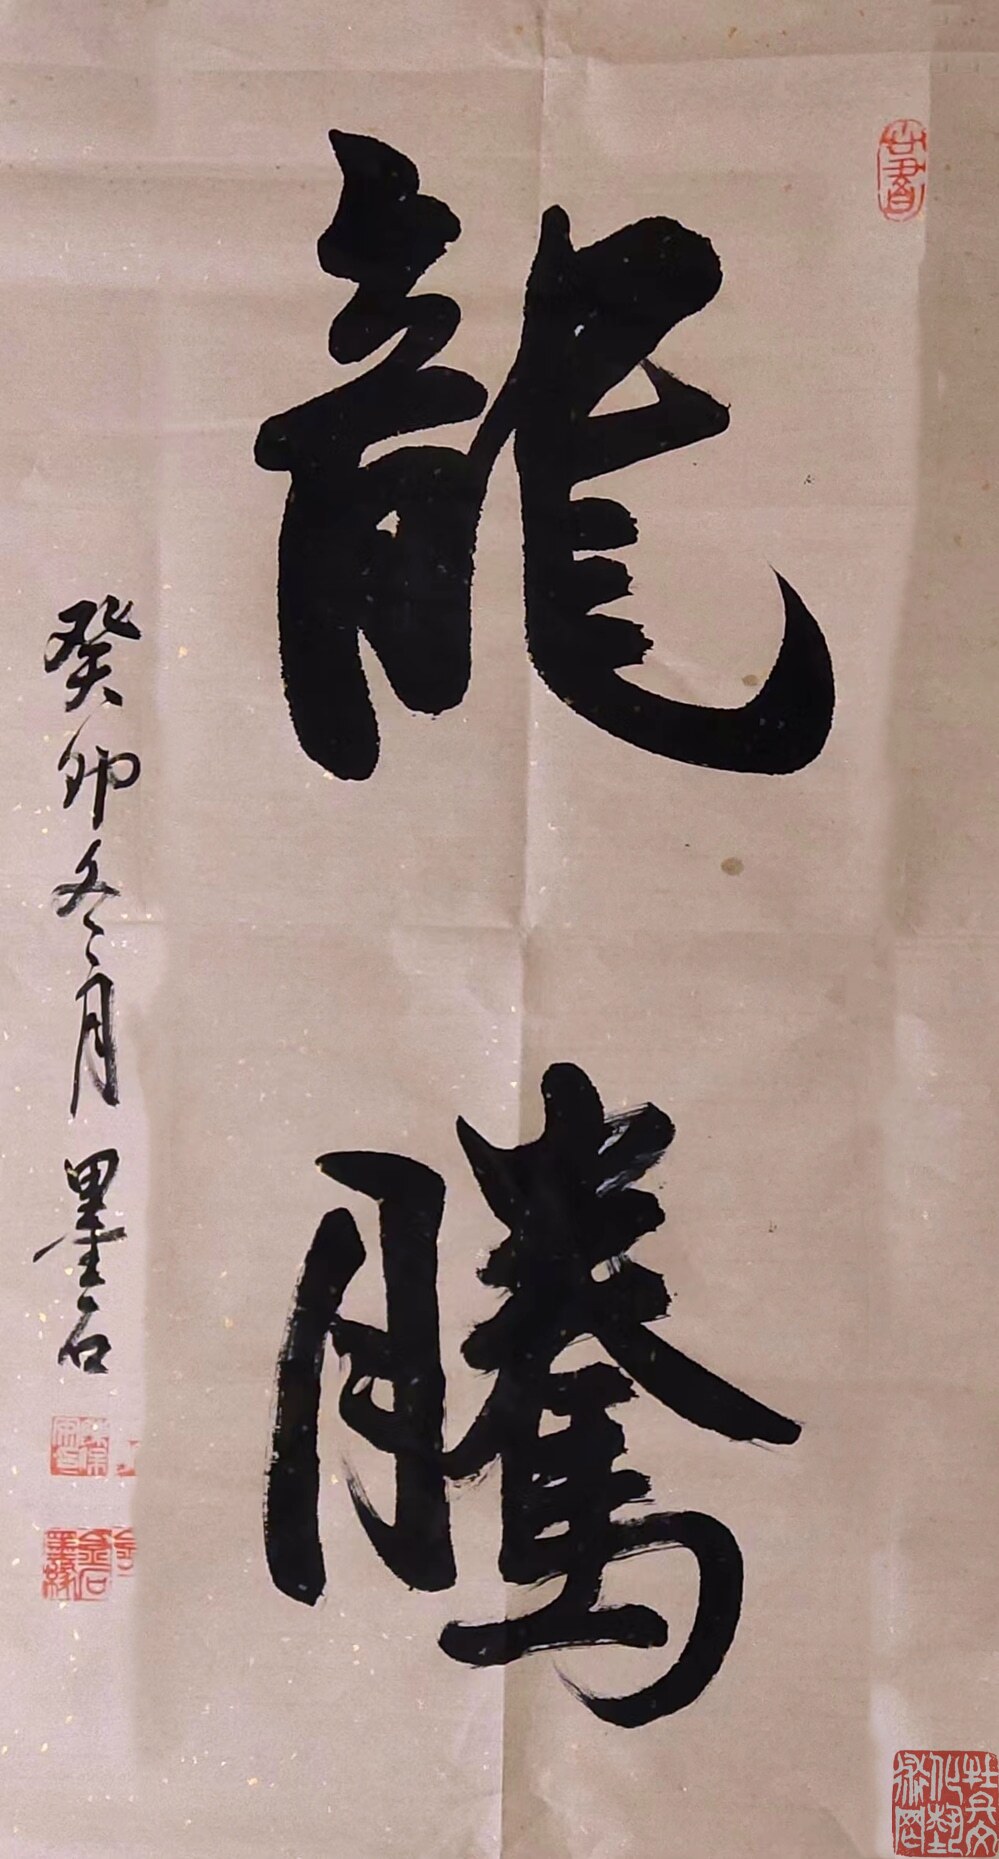 龍騰
癸卯冬月 墨石